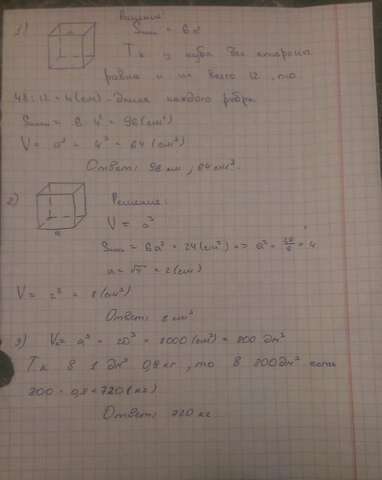 1) Решение:
Sпов = 6a²
Т.к у куба все стороны
равна и их всего 12, то
48 : 12 = 4 (см) - длина каждого ребра
Sпов = 6 · 4² = 96 (см²)
V = a³ = 4³ = 64 (см³)
Ответ: 96 см², 64 см³.
2) Решение:
V = a³
a
Sпов = 6a² = 24 (см²) => a² = = 4
a = = 2 (см)
V = 2³ = 8 (см³)
Ответ: 8 см³
3) V = a³ = 20³ = 8000 (см³) = 800 дм³
Т.к в 1 дм³ 0,9 кг, то в 800 дм³ есть
800 · 0,9 = 720 (кг)
Ответ: 720 кг.